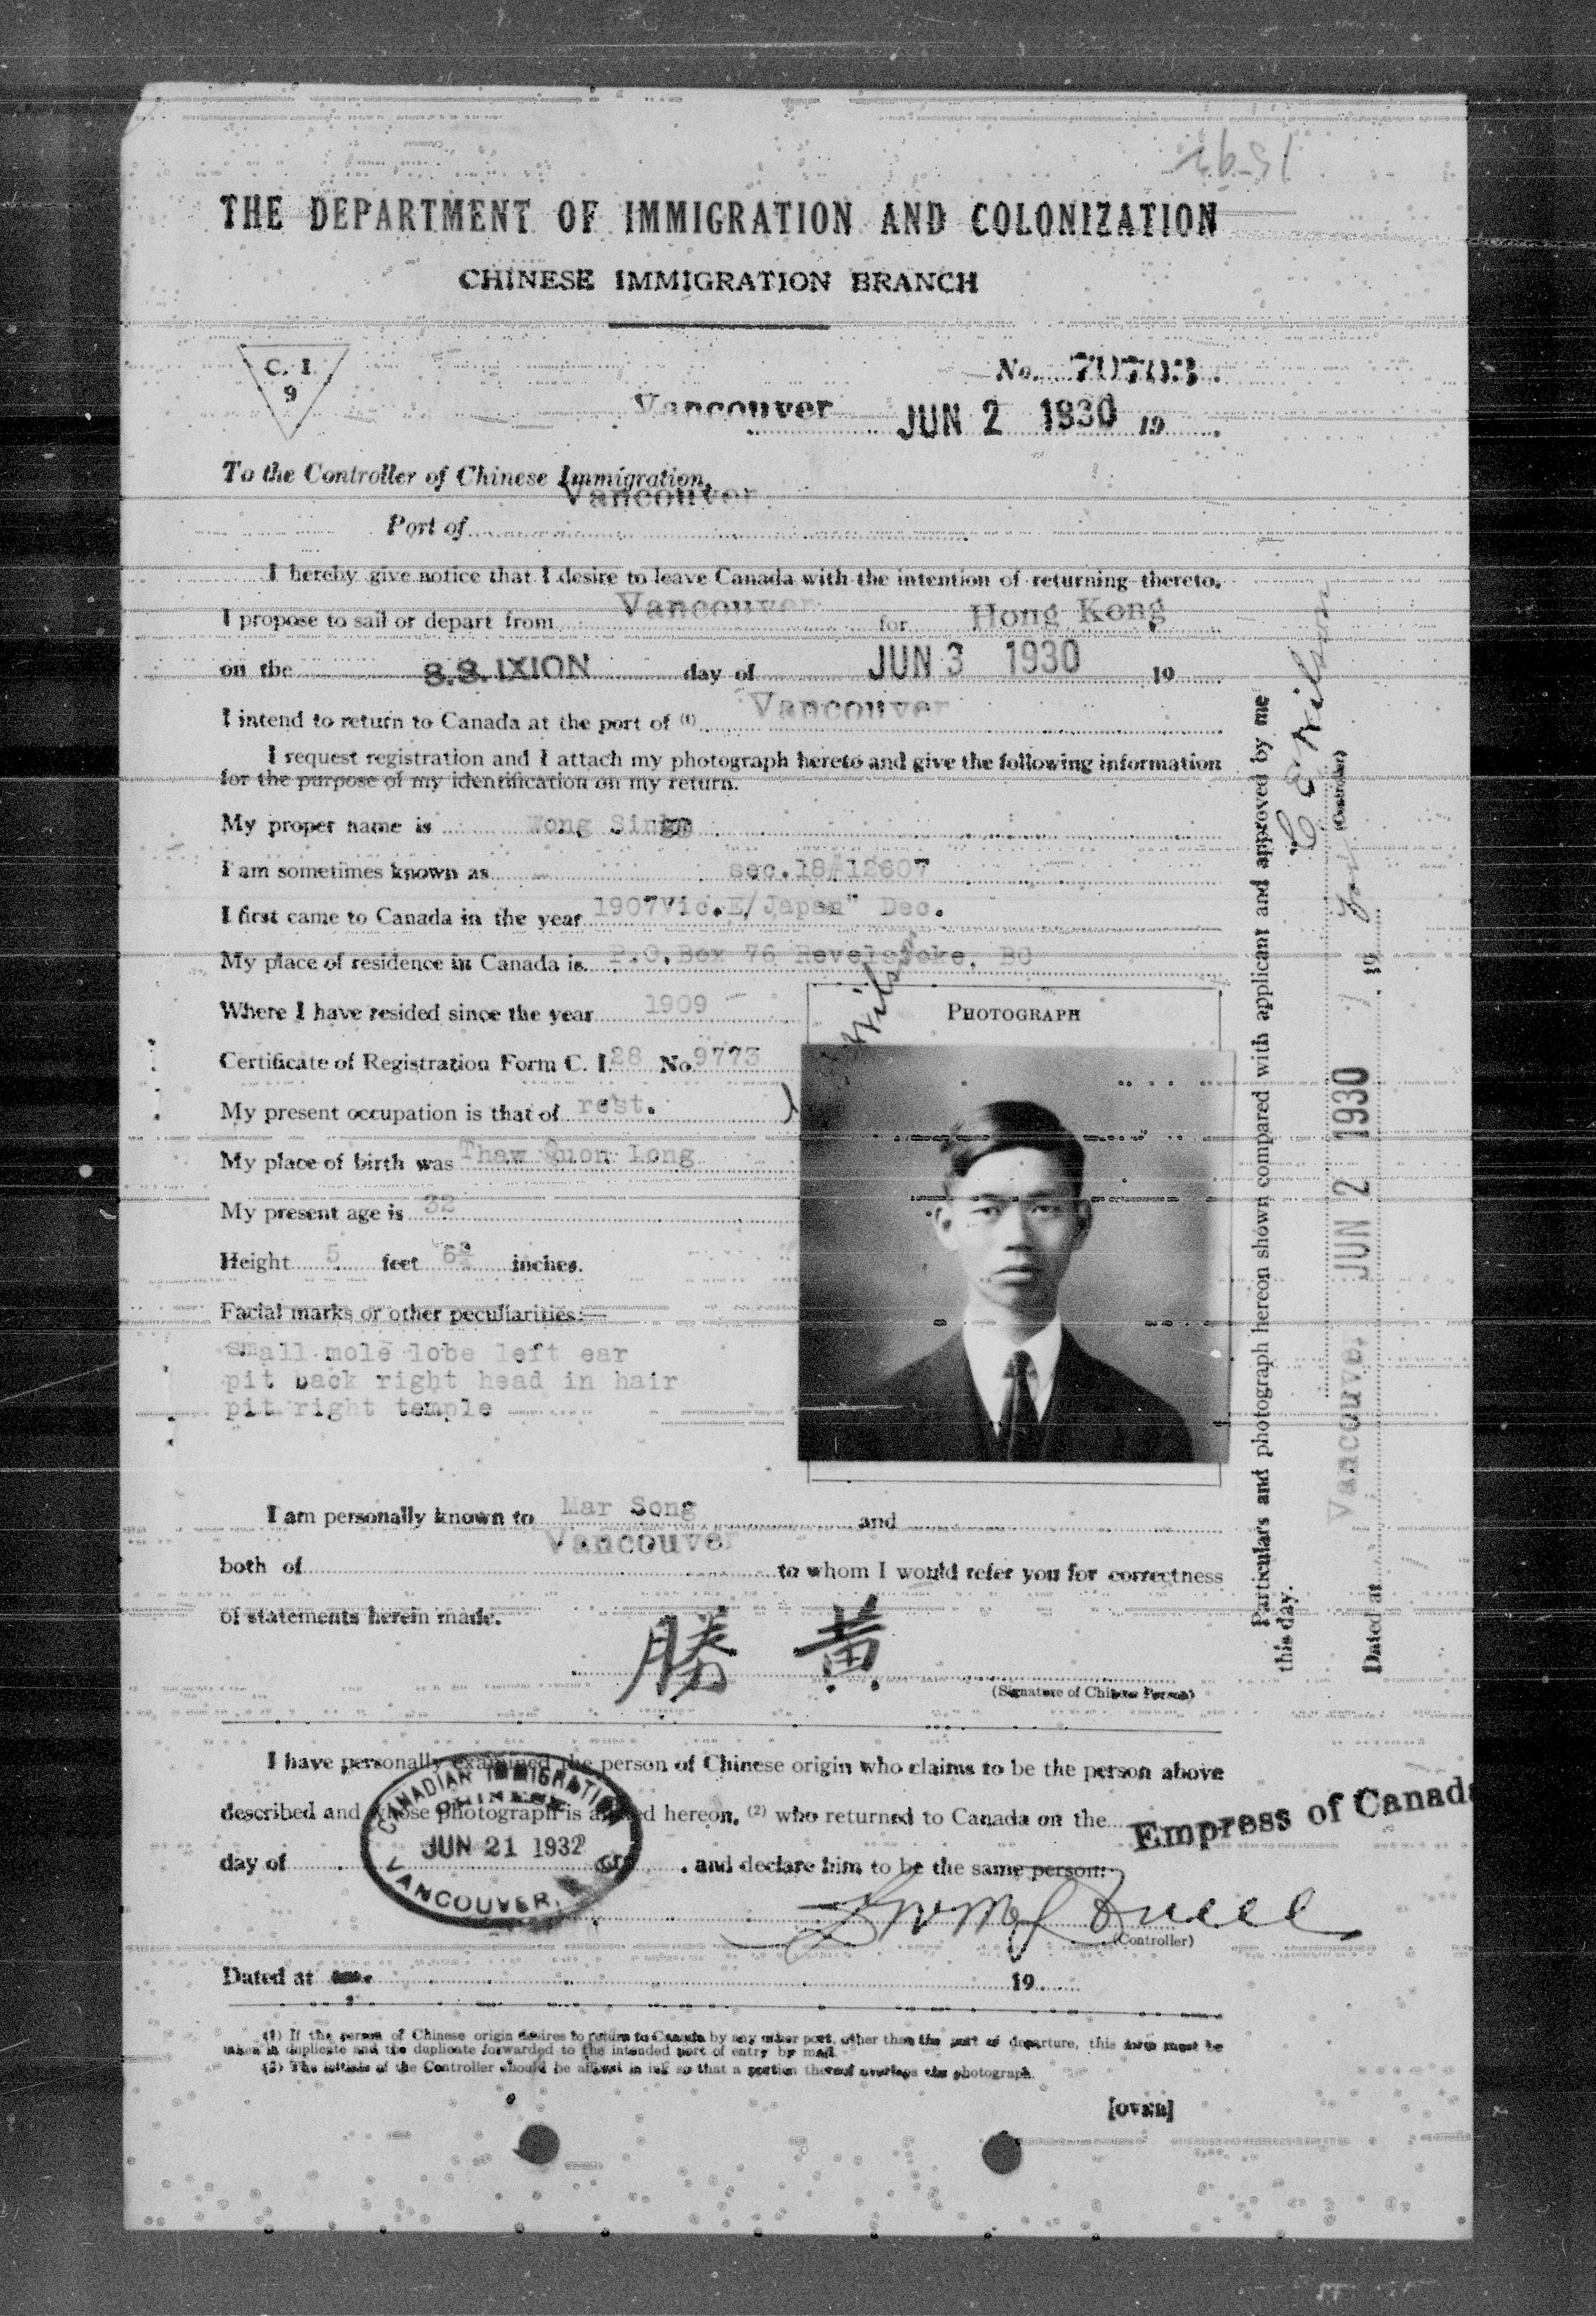 THE DEPARTMENT OF IMMIGRATION AND COLONIZATION
CHINESE IMMIGRATION BRANCH
C. I.
9
No. 70703.
Vancouver JUN 2 1930 19
To the Controller of Chinese Immigration,
Vancouver
Port of
I hereby give notice that I desire to leave Canada with the intention of returning thereto.
I propose to sail or depart from Vancouver for Hong Kong
on the S.S. IXION day of JUN 3 1930 19
I intend to return to Canada at the port of (1) Vancouver
I request registration and I attach my photograph hereto and give the following information
for the purpose of my identification on my return.
My proper name is Wong Sing
I am sometimes known as sec.18#12607
I first came to Canada in the year 1907 Vic.E/Japan" Dec.
My place of residence in Canada is P.O.Box 76 Revelstoke, BC
Where I have resided since the year 1909
Certificate of Registration Form C. I. 28 No. 9773
My present occupation is that of rest.
My place of birth was Thaw Quon Long
My present age is 32
Height 5 feet 6¾ inches.
Facial marks or other peculiarities:—
small mole lobe left ear
pit back right head in hair
pit right temple
PHOTOGRAPH
I am personally known to Mar Song and
both of Vancouver to whom I would refer you for correctness
of statements herein made.
勝 黃
(Signature of Chinese Person)
I have personally examined the person of Chinese origin who claims to be the person above
described and whose photograph is affixed hereon, (2) who returned to Canada on the Empress of Canada
day of , and declare him to be the same person.
CANADIAN IMMIGRATION
CHINESE
JUN 21 1932
VANCOUVER, B.C.
(Controller)
Dated at 19
(1) If the person of Chinese origin desires to return to Canada by any other port, other than the port of departure, this form must be
taken in duplicate and the duplicate forwarded to the intended port of entry by mail.
(2) The initials of the Controller should be affixed in ink so that a portion thereof overlaps the photograph.
[OVER]
Particulars and photograph hereon shown compared with applicant and approved by me
this day.
(Controller)
Dated at Vancouver JUN 2 1930 19